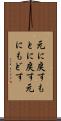 元に戻すも
とに戻す元
にもどす